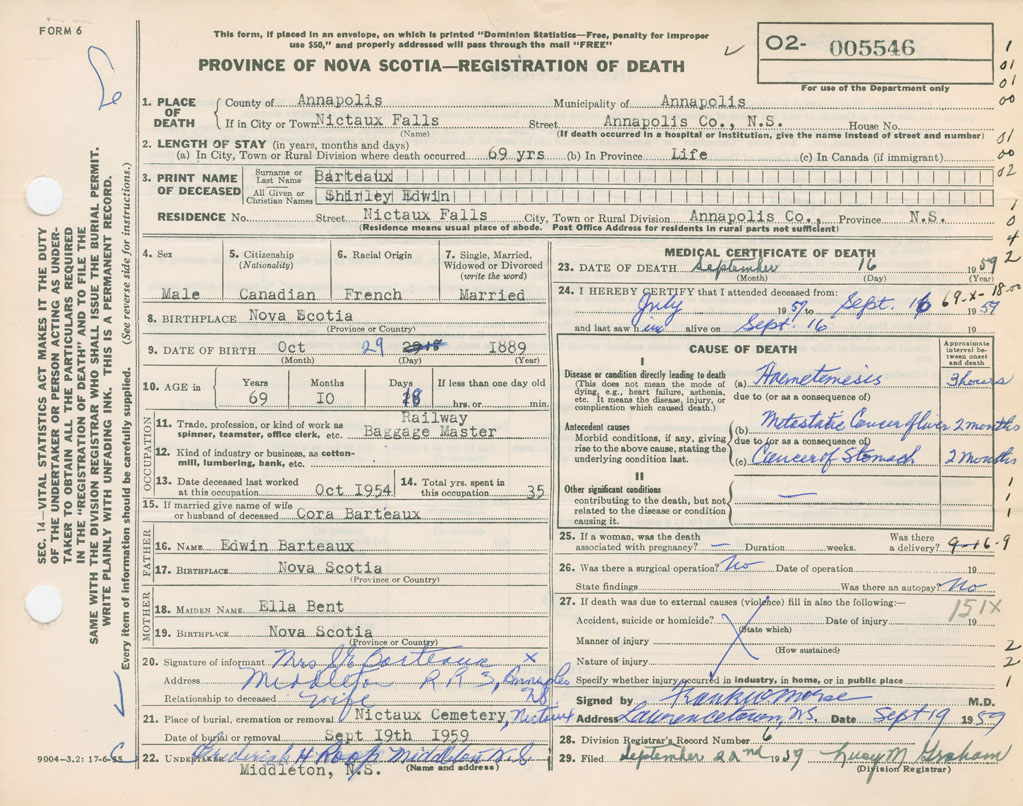 FORM 6
This form, if placed in an envelope, on which is printed "Dominion Statistics—Free, penalty for improper
use $50," and properly addressed will pass through the mail "FREE"
PROVINCE OF NOVA SCOTIA—REGISTRATION OF DEATH
O2- 005546
For use of the Department only
1. PLACE OF DEATH
County of Annapolis Municipality of Annapolis
If in City or Town Nictaux Falls Street Annapolis Co., N.S. House No.
(Name) (If death occurred in a hospital or institution, give the name instead of street and number)
2. LENGTH OF STAY (in years, months and days)
(a) In City, Town or Rural Division where death occurred 69 yrs (b) In Province Life (c) In Canada (if immigrant)
3. PRINT NAME OF DECEASED
Surname or Last Name Barteaux
All Given or Christian Names Shirley Edwin
RESIDENCE No. Street Nictaux Falls City, Town or Rural Division Annapolis Co., Province N.S.
(Residence means usual place of abode. Post Office Address for residents in rural parts not sufficient)
4. Sex 5. Citizenship (Nationality) 6. Racial Origin 7. Single, Married, Widowed or Divorced (write the word)
Male Canadian French Married
8. BIRTHPLACE Nova Scotia
(Province or Country)
9. DATE OF BIRTH Oct 29 1889
(Month) (Day) (Year)
10. AGE in Years Months Days If less than one day old
69 IO 18 hrs. or min.
OCCUPATION
11. Trade, profession, or kind of work as spinner, teamster, office clerk, etc. Railway Baggage Master
12. Kind of industry or business, as cotton-mill, lumbering, bank, etc.
13. Date deceased last worked at this occupation Oct I954 14. Total yrs. spent in this occupation 35
15. If married give name of wife or husband of deceased Cora Barteaux
FATHER
16. NAME Edwin Barteaux
17. BIRTHPLACE Nova Scotia
(Province or Country)
MOTHER
18. MAIDEN NAME Ella Bent
19. BIRTHPLACE Nova Scotia
(Province or Country)
20. Signature of informant Mrs S E Barteaux X
Address Middleton R.R 3, Annapolis NS
Relationship to deceased wife
21. Place of burial, cremation or removal Nictaux Cemetery, Nictaux
Date of burial or removal Sept 19th 1959
22. Undertaker Frederick H Roop Middleton N.S
Middleton, N.S. (Name and address)
9004—3.2: 17-6-55
MEDICAL CERTIFICATE OF DEATH
23. DATE OF DEATH September 16 1959
(Month) (Day) (Year)
24. I HEREBY CERTIFY that I attended deceased from: 69-X-18-00
July 1959 to Sept. 16 1959
and last saw him alive on Sept. 16 19
CAUSE OF DEATH
Approximate interval between onset and death
I
Disease or condition directly leading to death
(This does not mean the mode of dying, e.g., heart failure, asthenia, etc. It means the disease, injury, or complication which caused death.)
(a) Haemetemesis 3 hours
due to (or as a consequence of)
Antecedent causes
Morbid conditions, if any, giving rise to the above cause, stating the underlying condition last.
(b) Metastatic Cancer of liver 2 months
due to (or as a consequence of)
(c) Cancer of Stomach 2 Months
II
Other significant conditions
contributing to the death, but not related to the disease or condition causing it.
—
25. If a woman, was the death associated with pregnancy? — Duration weeks. Was there a delivery? 9-16-9
26. Was there a surgical operation? No Date of operation 19
State findings Was there an autopsy? No
27. If death was due to external causes (violence) fill in also the following:— 151X
Accident, suicide or homicide? Date of injury 19
(State which)
Manner of injury
(How sustained)
Nature of injury
Specify whether injury occurred in industry, in home, or in public place
Signed by Frank W Morse M.D.
Address Lawrencetown, N.S. Date Sept 19 1959
28. Division Registrar's Record Number 6
29. Filed September 22nd 1959 Lucy M Graham
(Division Registrar)
SEC. 14—VITAL STATISTICS ACT MAKES IT THE DUTY
OF THE UNDERTAKER OR PERSON ACTING AS UNDER-
TAKER TO OBTAIN ALL THE PARTICULARS REQUIRED
IN THE "REGISTRATION OF DEATH" AND TO FILE THE
SAME WITH THE DIVISION REGISTRAR WHO SHALL ISSUE THE BURIAL PERMIT.
WRITE PLAINLY WITH UNFADING INK. THIS IS A PERMANENT RECORD.
Every item of information should be carefully supplied. (See reverse side for instructions.)
1
01
01
00
01
00
02
1
0
4
2
1
1
1
2
2
1